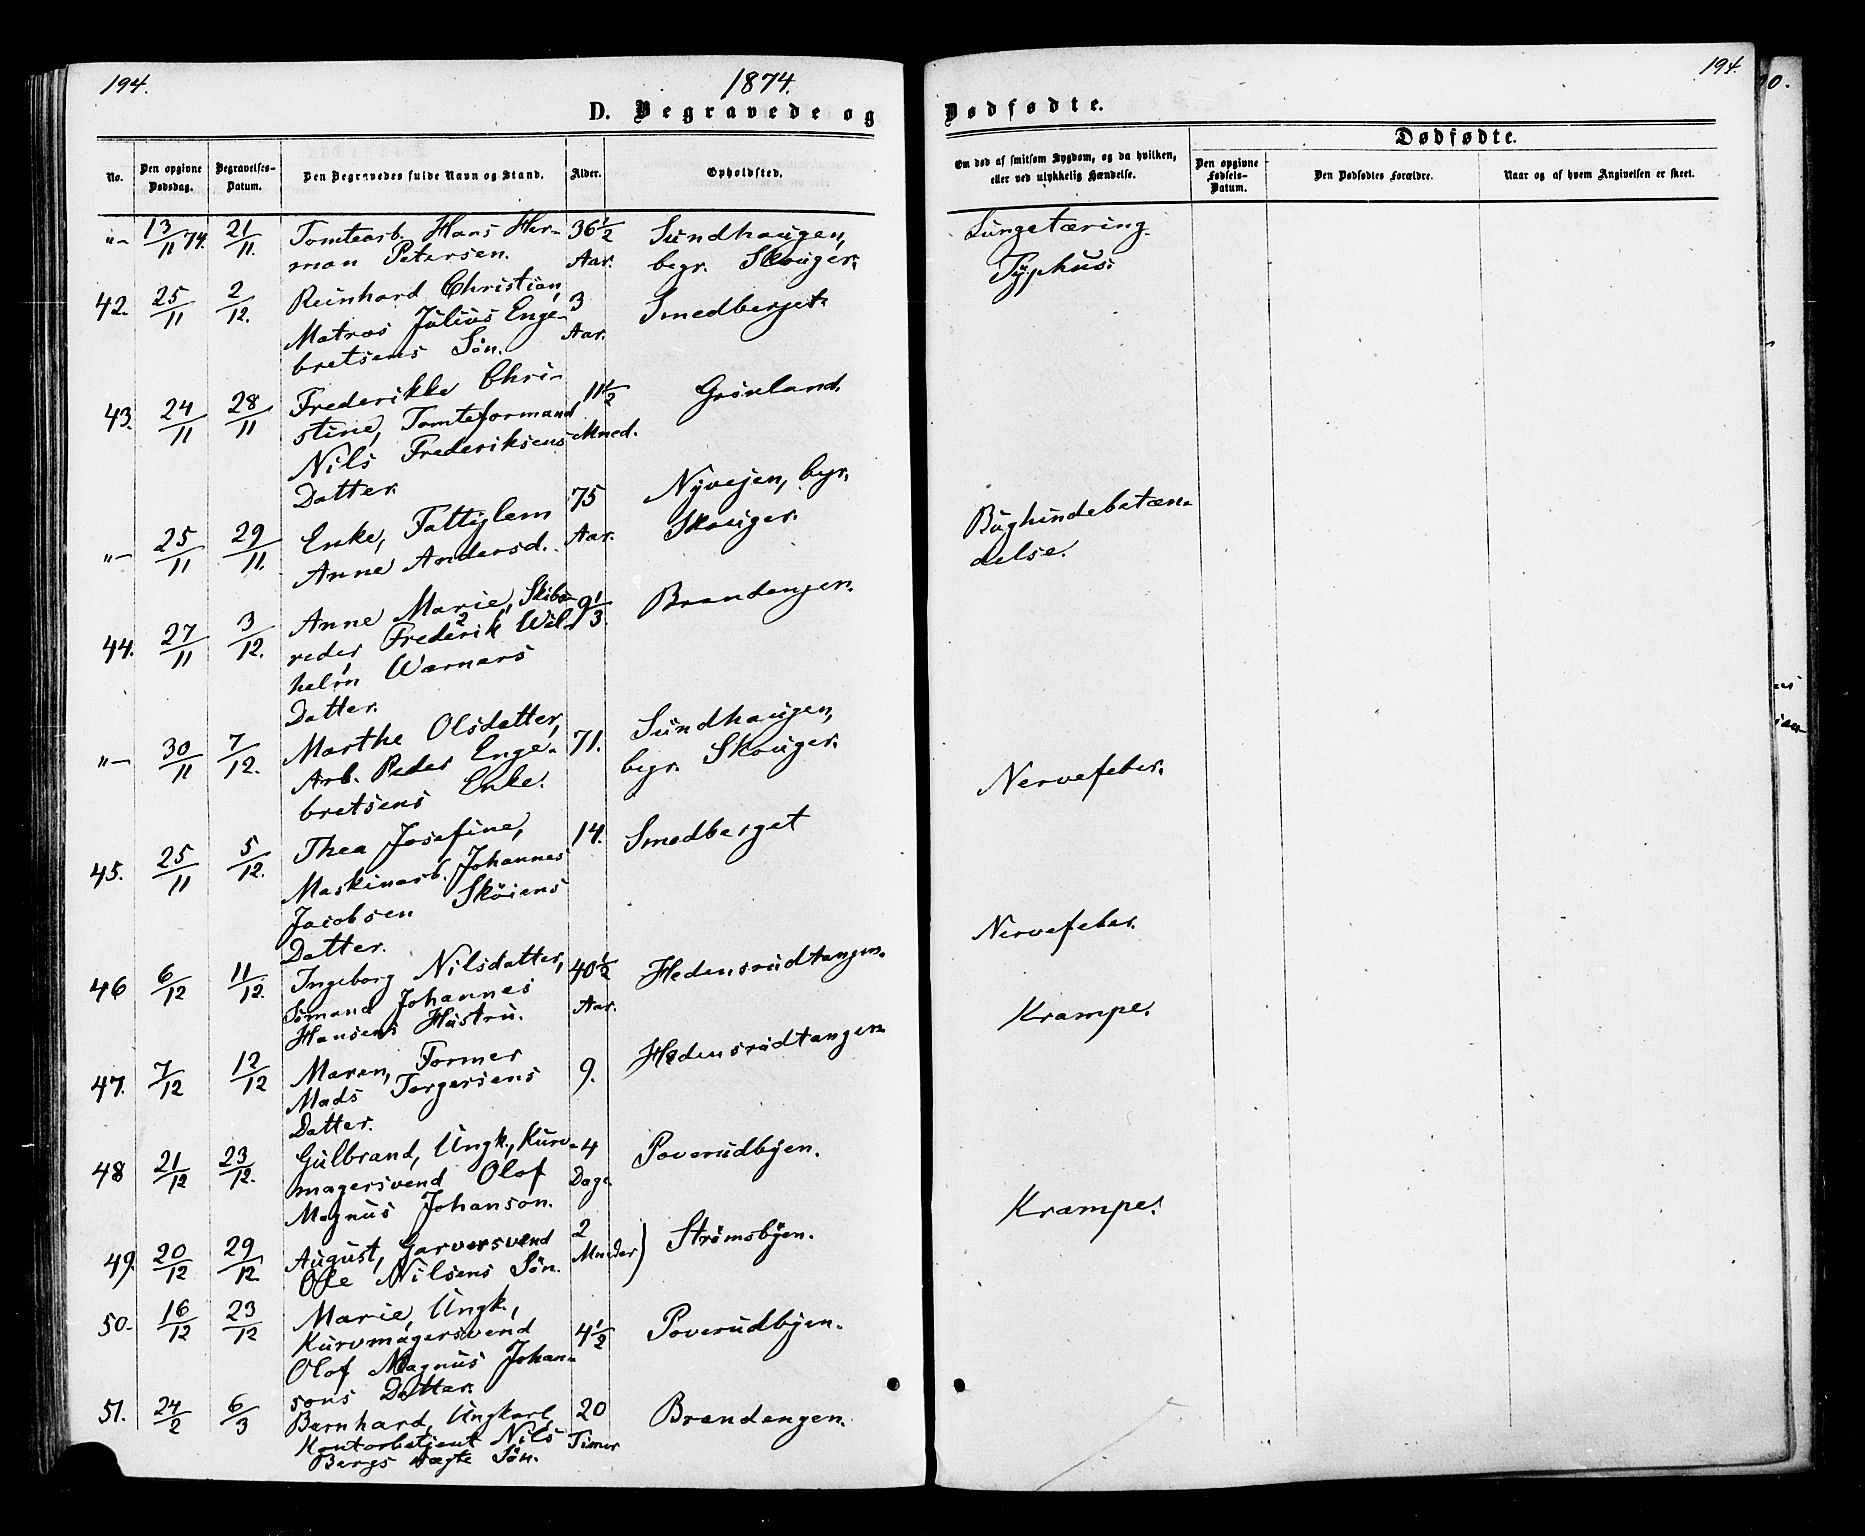 194.
1874.
D. Begravede og
No.
Den opgivne Dødsdag.
Begravelses-Datum.
Den Begravedes fulde Navn og Stand.
Alder.
Opholdsted.
"– 13/11 74. 21/11. Tomtearb. Hans Her- 36½ Sundhaugen,
man Petersen. Aar. begr. Skouger.
42. 25/11 2/12. Reinhard Christian, 3 Smedberget.
Matros Julius Enge- Aar.
bretsens Søn.
43. 24/11 28/11 Frederikke Chri- 11½ Grønland.
stine, Tomteformand
Nils Frederiksens Mned.
Datter.
"– 25/11 29/11. Enke, Fattiglem 75 Nyvejen, begr.
Anne Andersd. Aar. Skouger.
44. 27/11 3/12. Anne Marie, Skibs- 9⅓ Brandengen.
reder Frederik Wil-
helm Warners
Datter.
"– 30/11 7/12. Marthe Olsdatter, 71. Sundhaugen,
Arb. Peder Enge- begr. Skouger.
bretsens Enke.
45. 25/11 5/12. Thea Josefine, 14. Smedberget
Maskinarb. Johannes
Jacobsen Sköiens
Datter.
46 6/12 11/12. Ingeborg Nilsdatter, 40½ Hedensrudtangen.
Sömand Johannes Aar.
Hansens Hustru.
47. 7/12 12/12 Maren, Former 9. Hedensrudtangen
Mads Torgersens
Datter.
48 21/12 23/12. Gulbrand, Ungk. Kurv- 4 Poverudbyen.
magersvend Olof Dage
Magnus Johanson.
49. 20/12 29/12. August, Garversvend 2 Strømsbyen.
Ole Nilsens Søn. Mneder)
50. 16/12 23/12 Marie, Ungk.,
Kurvmagersvend 4½ Poverudbyen.
Olof Magnus Johan-
sons Datter.
51. 24/2 6/3 Bernhard, Ungkarl 20 Brandengen.
Kontorbetjent Nils Timer
Bergs uægte Søn.
194.
Dødfødte.
Om død af smitsom Sygdom, og da hvilken,
eller ved ulykkelig Hændelse.
Dødfødte.
Den opgivne Fødsels-Datum.
Den Dødfødtes Forældre.
Naar og af hvem Angivelsen er skeet.
Lungetæring.
Typhus.
Bughindebetæn-
delse.
Nervefeber.
Nervefeber.
Krampe.
Krampe.